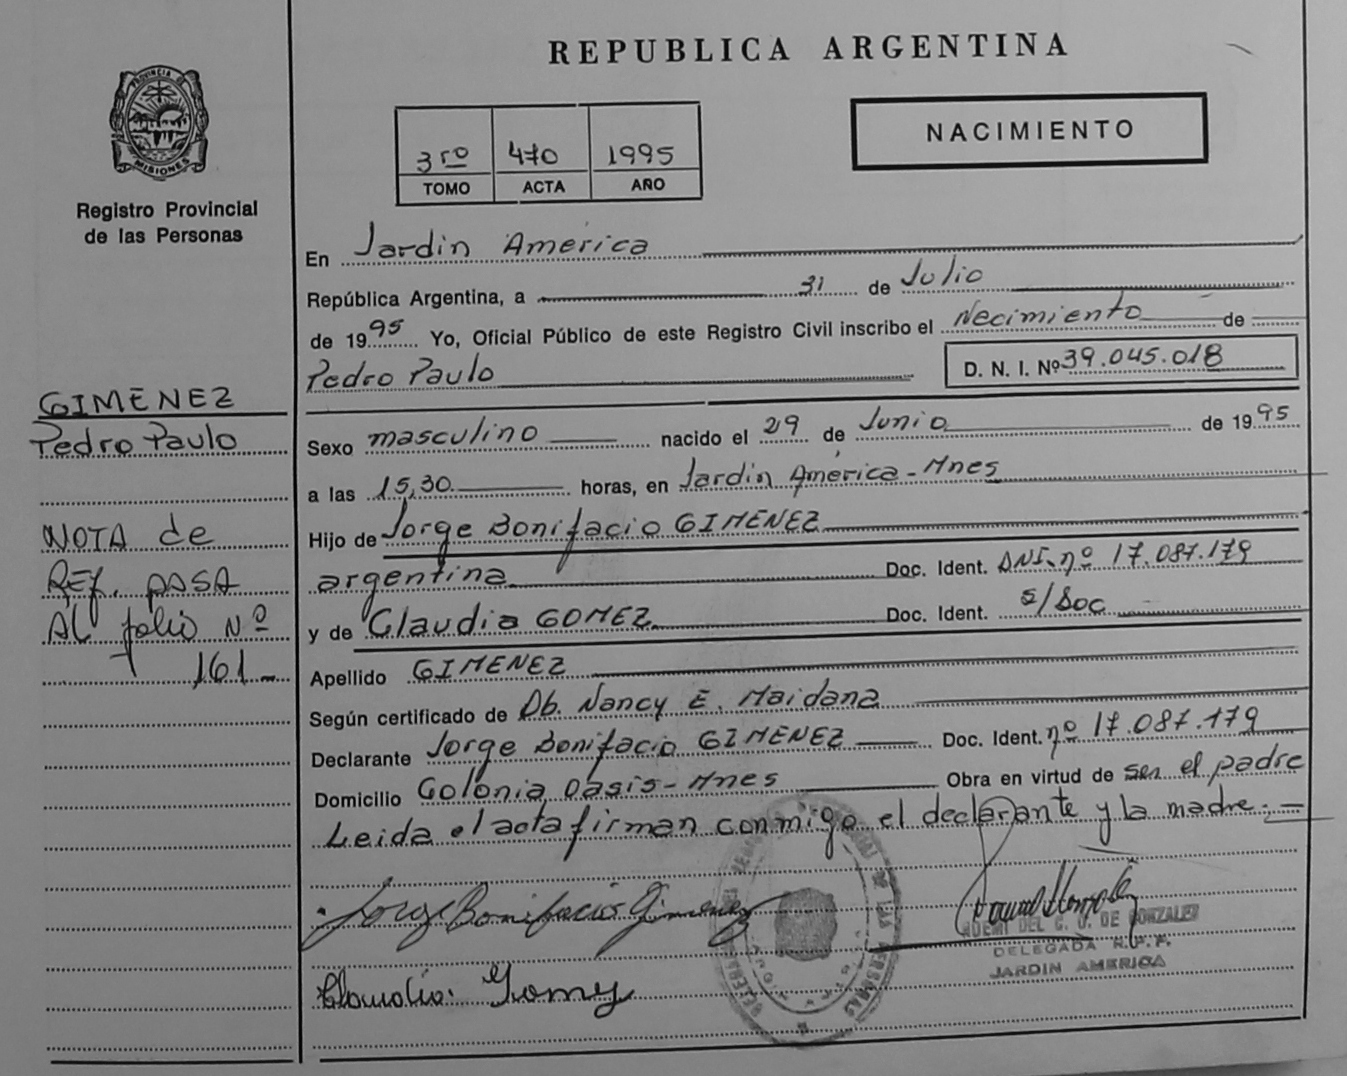 REPUBLICA ARGENTINA
PROVINCIA DE
MISIONES
Registro Provincial
de las Personas
3ro 470 1995
TOMO ACTA AÑO
NACIMIENTO
En Jardin America
República Argentina, a 31 de Julio
de 1995 Yo, Oficial Público de este Registro Civil inscribo el Necimiento de
Pedro Paulo D. N. I. Nº 39.045.018
GIMENEZ
Pedro Paulo
Sexo masculino nacido el 29 de Junio de 1995
a las 15,30 horas, en Jardin América - Mnes
NOTA de
REF. PASA
AL folio Nº
161
Hijo de Jorge Bonifacio GIMENEZ
argentina Doc. Ident. DNI. nº 17.087.179
y de Claudia GOMEZ Doc. Ident. s/Doc
Apellido GIMENEZ
Según certificado de Ob. Nancy E. Maidana
Declarante Jorge Bonifacio GIMENEZ Doc. Ident. nº 17.087.179
Domicilio Colonia Oasis - Mnes Obra en virtud de ser el padre
Leida el acta firman conmigo el declarante y la madre.-
Jorge Bonifacio Gimenez
DEL C. J. DE GONZALEZ
DELEGADA R.P.P.
JARDIN AMERICA
Claudia Gomez